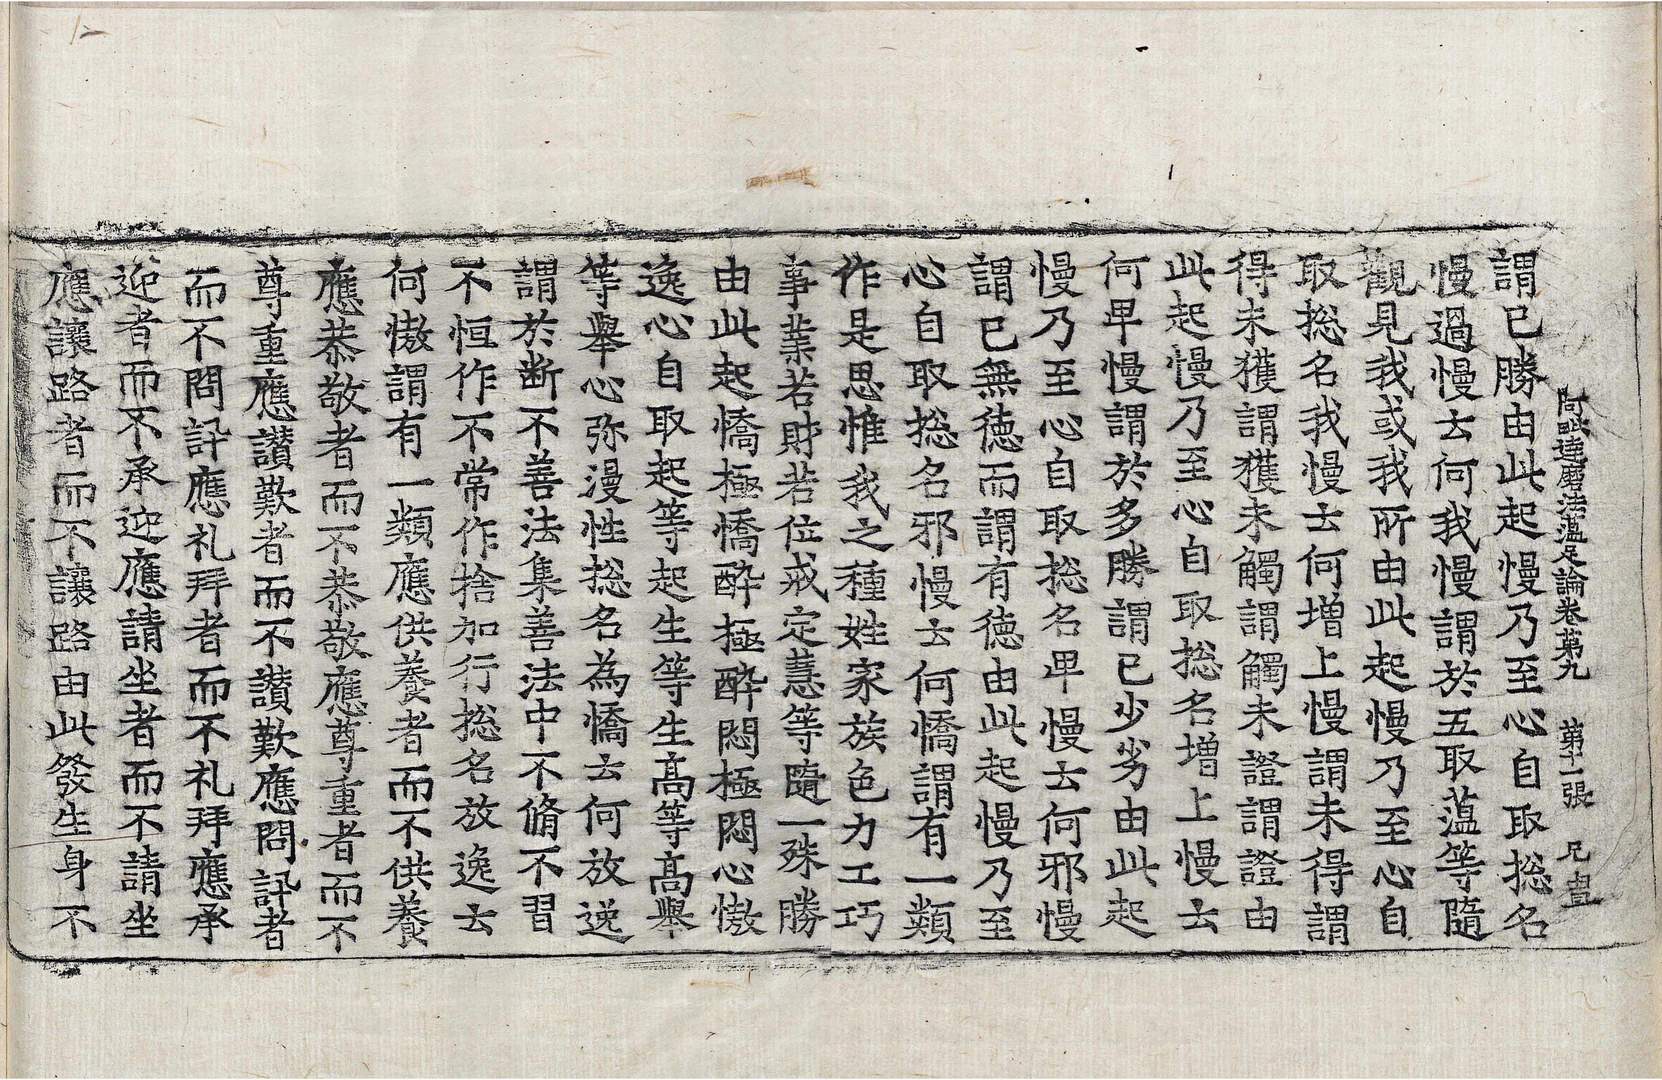 阿毗達磨法蕴足論卷第九　第十一張　兄
謂已勝由此起慢乃至心自取捴名
慢過慢云何我慢謂於五取蕰等隨
觀見我或我所由此起慢乃至心自
取捴名我慢云何增上慢謂未得謂
得未獲謂獲未觸謂觸未證謂證由
此起慢乃至心自取捴名增上慢云
何卑慢謂於多勝謂已少劣由此起
慢乃至心自取捴名卑慢云何邪慢
謂已無德而謂有德由此起慢乃至
心自取捴名邪慢云何憍謂有一類
作是思惟我之種姓家族色力工巧
事業若財若位戒定慧等隨一殊勝
由此起憍極憍醉極醉悶極悶心慠
逸心自取起等起生等生高等高舉
等舉心弥漫性捴名為憍云何放逸
謂於断不善法集善法中不脩不習
不恒作不常作捨加行捴名放逸云
何慠謂有一類應供養者而不供養
應恭敬者而不恭敬應尊重者而不
尊重應讃歎者而不讃歎應問訊者
而不問訊應礼拜者而不礼拜應承
迎者而不承迎應請坐者而不請坐
應讓路者而不讓路由此發生身不